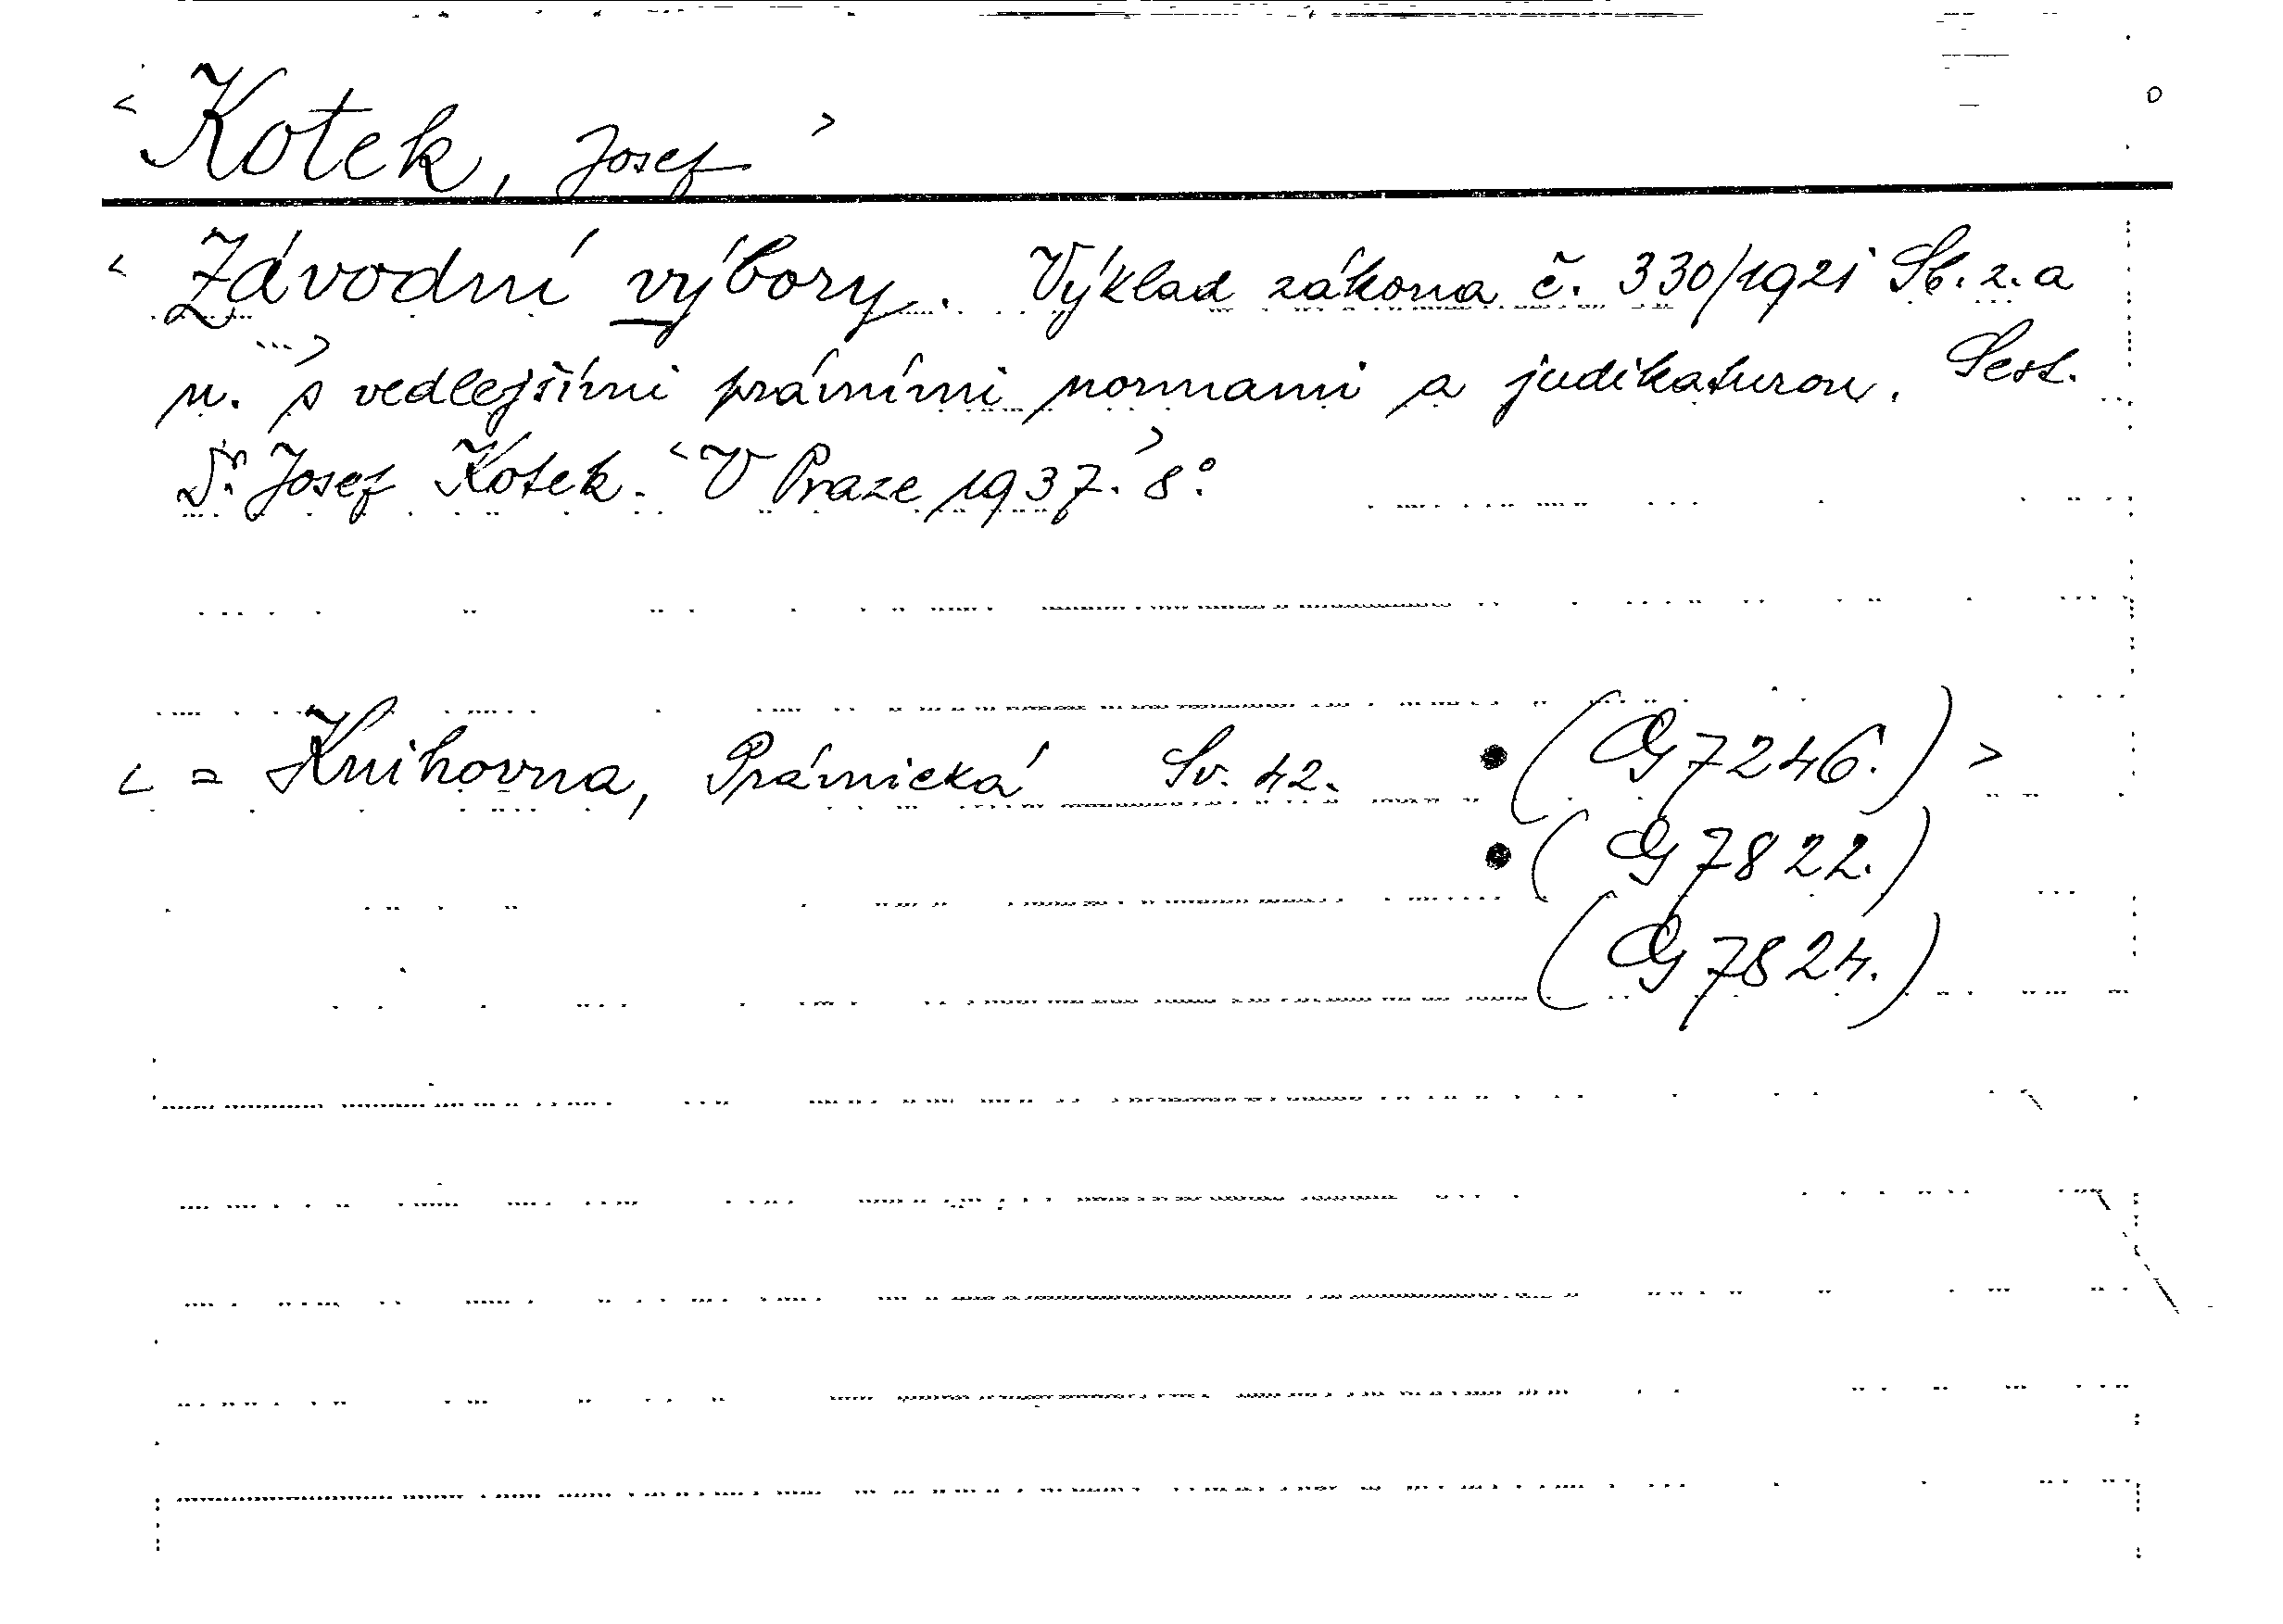 < Kotek, Josef >
< Závodní výbory. Výklad zákona č. 330/1921 Sb. z. a
n. > s vedlejšími právními normami a judikaturou. Sest.
Dr. Josef Kotek. < V Praze 1937. > 8°.
< = Knihovna, Právnická Sv. 42. • (G 7246.) >
• (G 7822.)
(G 7824.)